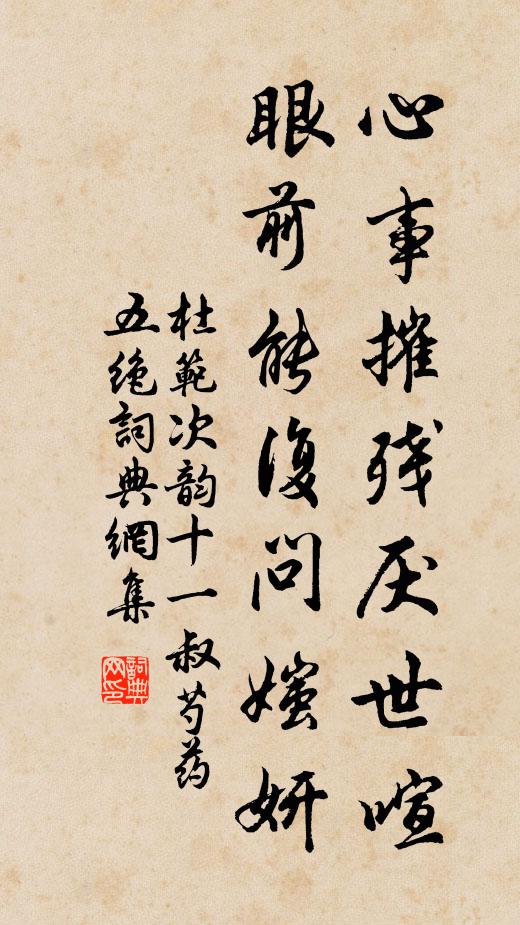 心事摧残厌世喧
眼前能復问媸妍
杜範次韵十一叔芍药
五绝詞典網集
詞典网印